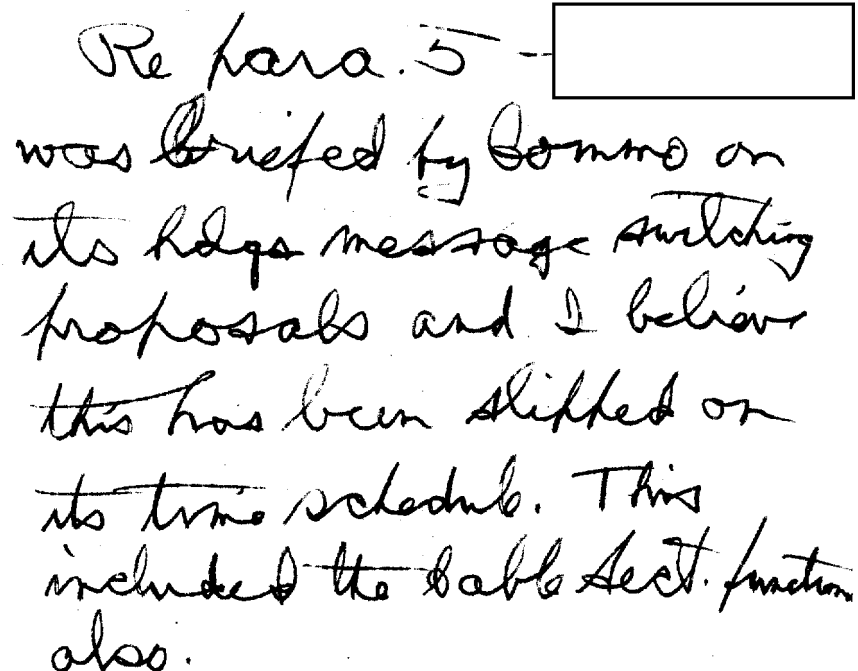 Re para. 5 --
was briefed by Commo on
its hdqs message switching
proposals and I believe
this has been slipped on
its time schedule. This
included the Cable Sect. function
also.